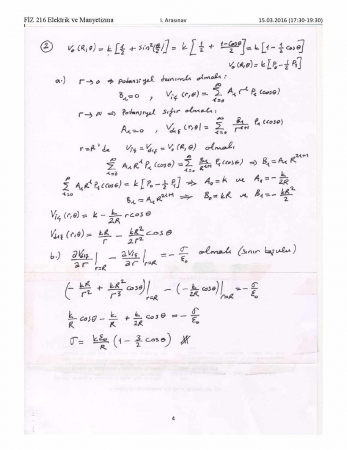 FİZ 216 Elektrik ve Manyetizma I. Arasınav 15.03.2016 (17:30-19:30)
② V₀(R,θ) = k[1/2 + sin²(θ/2)] = k[1/2 + (1-cosθ)/2] = k[1 - 1/2 cosθ]
V₀(R,θ) = k[P₀ - 1/2 P₁]
a-) r→0 ⇒ Potansiyel tanımlı olmalı:
Bℓ=0 , Viç(r,θ) = ∑ℓ=0^∞ Aℓ r^ℓ Pℓ(cosθ)
r→∞ ⇒ Potansiyel sıfır olmalı:
Aℓ=0 , Vdış(r,θ) = ∑ℓ=0^∞ Bℓ/r^(ℓ+1) Pℓ(cosθ)
r=R'de Viç=Vdış=V₀(R,θ) olmalı
∑ℓ=0^∞ Aℓ R^ℓ Pℓ(cosθ) = ∑ℓ=0^∞ Bℓ/R^(ℓ+1) Pℓ(cosθ) ⇒ Bℓ=Aℓ R^(2ℓ+1)
∑ℓ=0^∞ Aℓ R^ℓ Pℓ(cosθ) = k[P₀ - 1/2 P₁] ⇒ A₀=k ve A₁=-k/2R
Bℓ=Aℓ R^(2ℓ+1) ⇒ B₀=kR ve B₁=-kR²/2
Viç(r,θ) = k - k/2R r cosθ
Vdış(r,θ) = kR/r - kR²/2r² cosθ
b-) ∂Vdış/∂r|r=R - ∂Viç/∂r|r=R = -σ/ε₀ olmalı (sınır koşulu)
(-kR/r² + kR²/r³ cosθ)|r=R - (-k/2R cosθ)|r=R = -σ/ε₀
k/R cosθ - k/R + k/2R cosθ = -σ/ε₀
σ = kε₀/R (1 - 3/2 cosθ)
4